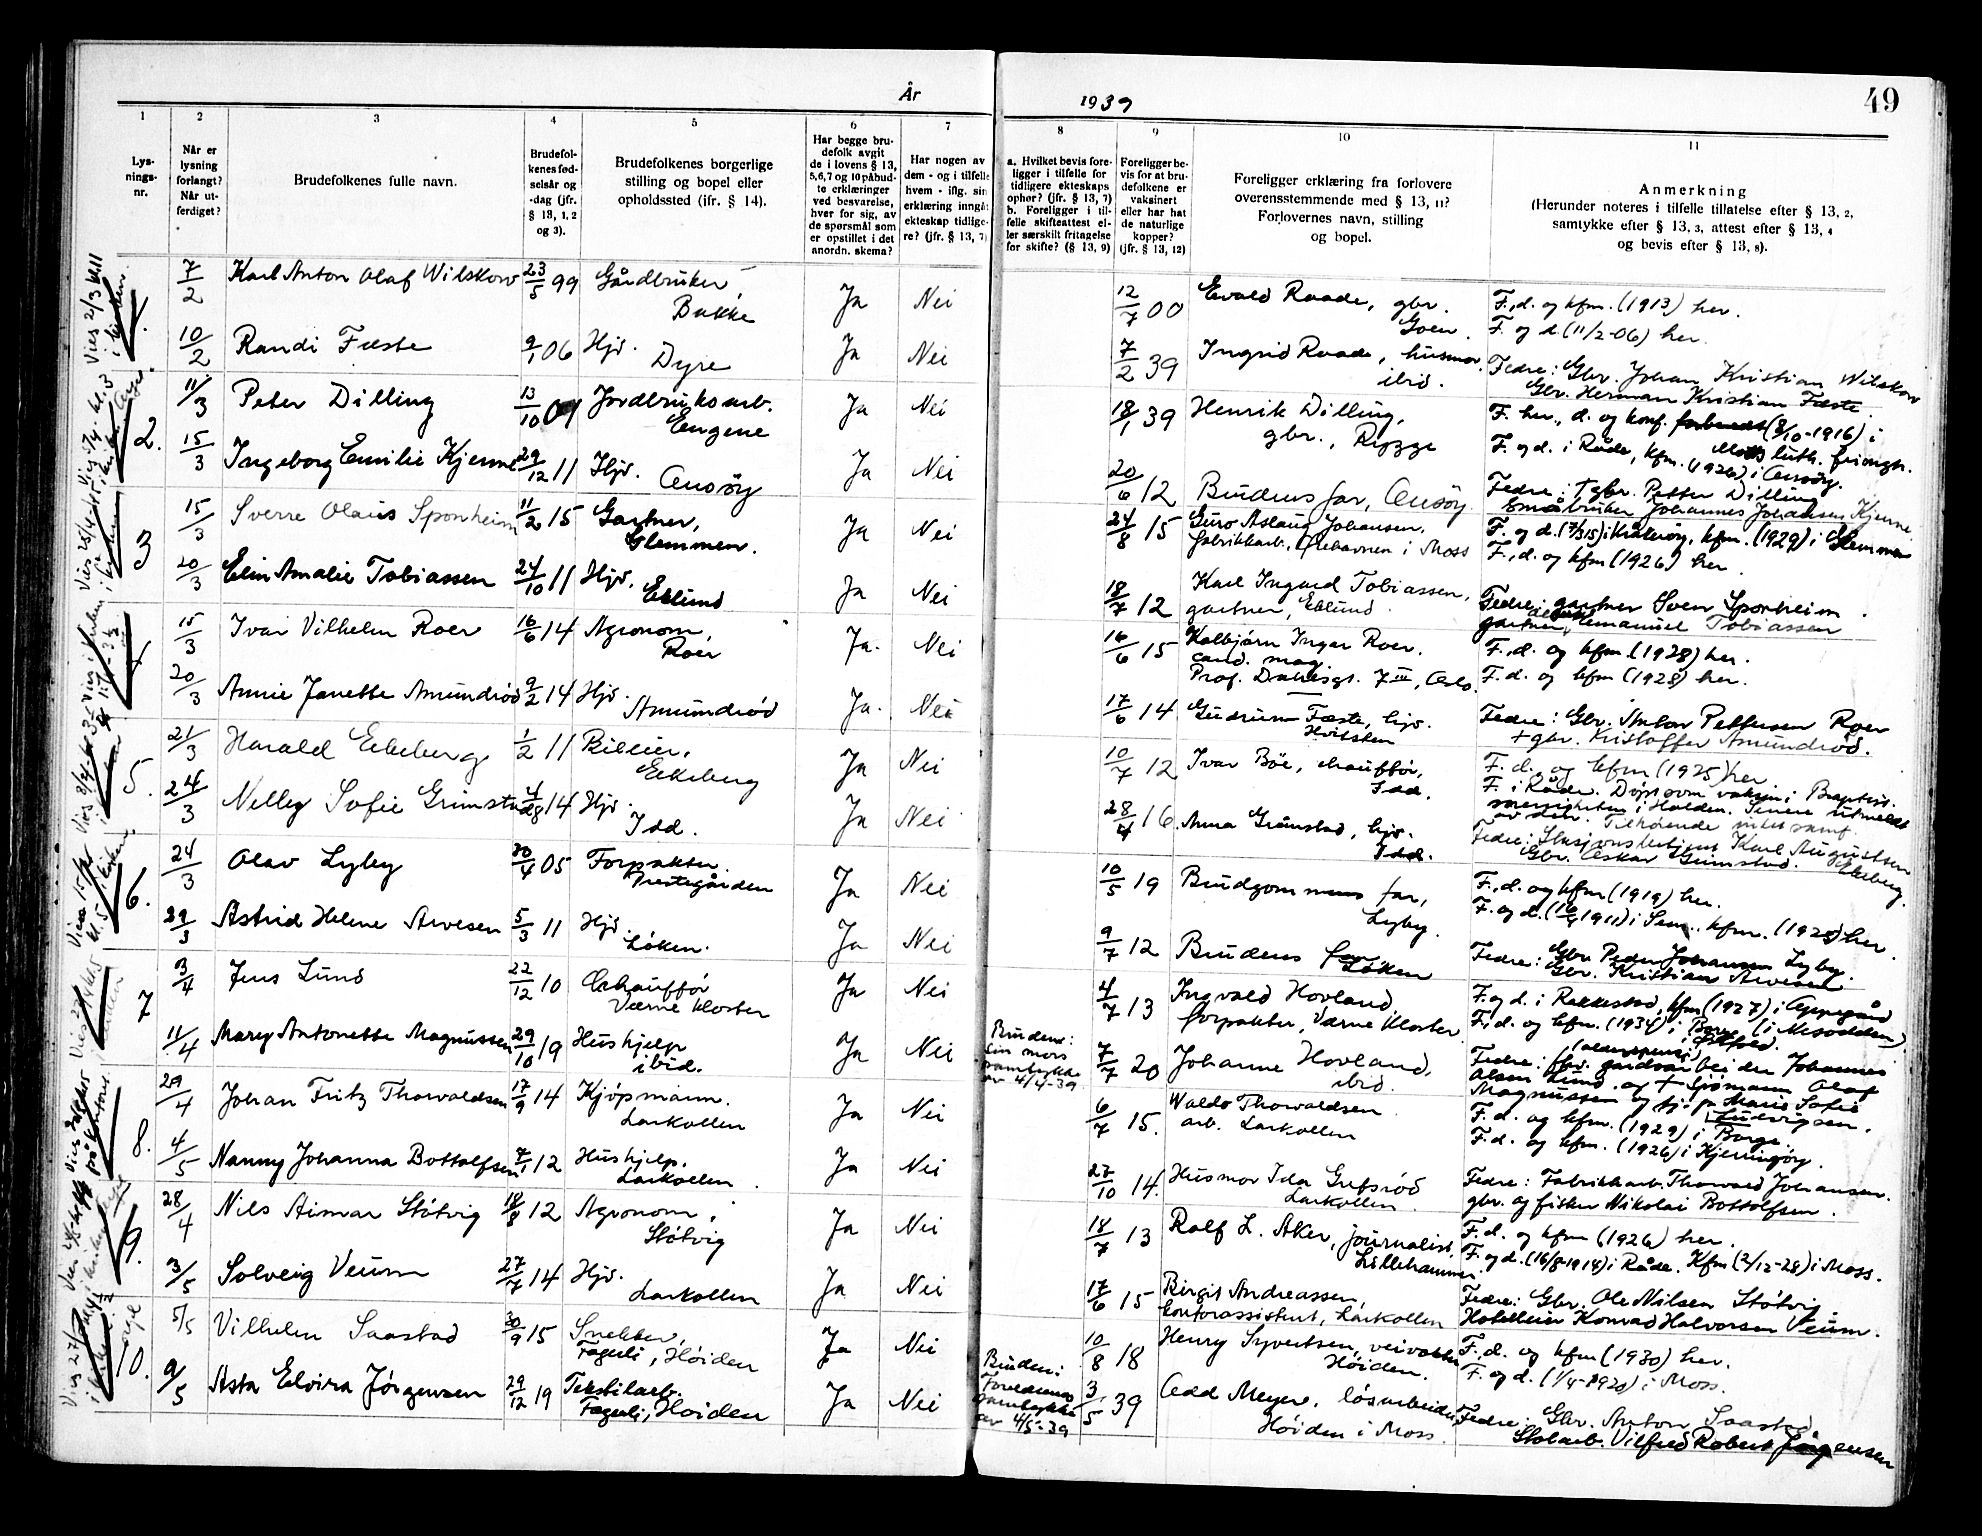 År
1939
49
1
2
3
4
5
6
7
8
9
10
11
Lys-
nings-
nr.
Når er
lysning
forlangt?
Når ut-
ferdiget?
Brudefolkenes fulle navn.
Brudefol-
kenes fød-
selsår og
-dag (jfr.
§ 13, 1, 2
og 3).
Brudefolkenes borgerlige
stilling og bopel eller
opholdssted (ifr. § 14).
Har begge bru-
defolk avgit
de i lovens § 13,
5,6,7 og 10 påbud-
te erklæringer
ved besvarelse,
hver for sig, av
de spørsmål som
er opstillet i det
anordn. skema?
Har nogen av
dem - og i tilfelle
hvem - iflg. sin
erklæring inngåt
ekteskap tidlige-
re? (jfr. § 13, 7)
a. Hvilket bevis fore-
ligger i tilfelle for
tidligere ekteskaps
ophør? (jfr. § 13, 7)
b. Foreligger i til-
felle skifteattest el-
ler særskilt fritagelse
for skifte? (§ 13, 9)
Foreligger be-
vis for at bru-
defolkene er
vaksinert
eller har hat
de naturlige
kopper?
(jfr. § 13, 12)
Foreligger erklæring fra forlovere
overensstemmende med § 13, 11?
Forlovernes navn, stilling
og bopel.
Anmerkning
(Herunder noteres i tilfelle tillatelse efter § 13, 2,
samtykke efter § 13, 3, attest efter § 13, 4
og bevis efter § 13, 8).
1.
7/2 Karl Anton Olaf Wilskow 23/5 99 Gårdbruker
Bakke Ja Nei
12/7 00 Evald Raade, gbr.
Goen.
F., d. og kfm. (1913) her.
F. og d. (11/2-06) her.
10/2 Randi Fæste 9/1 06 Hjv.
Dyre Ja Nei
7/2 39 Ingrid Raade, husmor.
ibid.
Fedre: Gbr. Johan Kristian Wilskow
Gbr. Herman Kristian Fæste.
2.
11/3 Peter Dilling 13/10 Jordbruksarb.
Engene Ja Nei
18/1 39 Henrik Dilling,
gbr., Rygge
F. her., d. og konf. (8/10-1916) i
Moss luth. frimgh.
15/3 Ingeborg Emilie Kjerne 29/12 11 Hjv.
Ja Nei
20/6 12 Brudens far,
F. og d. i Råde, kfm. (1926) i
Fedre: † gbr. Petter Dilling
Småbruker Johannes Johansen Kjerne
3
15/3 Sverre Olaus Sponheim 11/2 15 Gartner,
Glemmen. Ja Nei
24/8 15 Guro Aslaug Johansen,
fabrikkarb., i Moss
F. og d. i Kråkerøy, kfm. (1929) i Glemmen
F., d. og kfm (1926) her.
20/3 Elin Amalie Tobiassen 24/10 11 Hjv.
Eklund Ja Nei
18/7 12 Karl Ingard Tobiassen,
gartner, Eklund.
Fedre: gartner Sven Sponheim
gartner Emanuel Tobiassen
4
15/3 Ivar Vilhelm Roer 16/6 14 Agronom,
Roer Ja. Nei
16/6 15 Kolbjørn Inger Roer.
cand. mag.
Prof. Dahlsgt. 7 III, Oslo.
F., d. og kfm. (1928) her.
F. d. og kfm (1928) her.
20/3 Annie Janette Amundrød 9/2 14 Hjv.
Amundrød Ja. Nei
17/6 14 Gudrun Fæste, hjv.
Hvitsten
Fedre: Gbr. Anton Pettersen Roer
+ gbr. Kristoffer Amundrød.
5.
21/3 Harald Eekeberg 1/2 11 Bileier,
Eekeberg Ja Nei
10/7 12 Ivar Böe, chauffør,
Idd.
F. d. og kfm (1925) her
24/3 Nelley Sofie Grimstad 4/28 14 Hjv.
Idd. Ja Nei
28/4 16 Anna Grimstad, hjv.
Idd.
F. i Råde. Døpt som voksen i Baptist-
menigheten i Halden. Senere utmeldt
av den. Tilhørende intet samf.
Fedre: Stasjonsbetjent Karl Augustsen Ekeberg.
Gbr. Oskar Grimstad.
6.
24/3 Olav Lyby 30/4 05 Forpakter
Prestegården Ja Nei
10/5 19 Brudgommens far,
Lyby.
F., d. og kfm. (1919) her.
F. og d. (16/4 1911) i Sem., kfm. (1925) her
29/3 Astrid Helene Arvesen 5/3 11 Hjv.
Løken. Ja Nei
9/7 12 Brudens far
Løken
Fedre: Gbr. Peder Johansen Lyby.
Gbr. Kristian Arvesen
7
3/4 Jens Lund 22/12 10 Chauffør
Værne Kloster Ja Nei
4/7 13 Ingvald Hovland,
forpakter, Værne Kloster.
F. og d. i Rakkestad, kfm (1927) i Oppegård
(i Nesodden).
11/4 Mary Antonette Magnussen 29/10 19 Hushjelp
ibid. Ja Nei
Brudens:
sin mors
samtykke
av 4/4-39
7/7 20 Johanne Hovland,
ibid.
F., d. og kfm. (1934) i Borge Østfold.
Fedre: fhv. gardsarbeider Johannes
Olsen Lund, og + sjømann Olaf
Magnussen og hj. p. Marie Sofie
Ludvigsen.
8.
29/4 Johan Fritz Thorvaldsen 17/9 14 Kjöpmann.
Larkollen Ja Nei
6/7 15. Waldo Thorvaldsen
arb. Larkollen
F. d. og kfm. (1929) i Borge.
F. d. og kfm. (1926) i Kjerringøy.
4/5 Nanny Johanna Bottolfsen 7/1 12 Hushjelp.
Larkollen Ja Nei
27/10 14. Husmor Ida Grefsrød
Larkollen.
Fedre: Fabrikkarb. Thorvald Johansen.
gbr. og fisker Nikolai Bottolfsen.
9.
28/4 Nils Aimar Støtvig 18/8 12 Agronom,
Støtvig Ja Nei
18/7 13 Rolf L. Aker, journalist,
Lillehammer.
F. d. og kfm (1926) her.
F. og d. (16/8-1914) i Råde. Kfm (2/12-28) i Moss.
3/5 Solveig Veum 27/7 14 Hjv.
Larkollen Ja Nei
17/6 15 Birgit Andreassen,
kontorassistent, Larkollen
Fedre: Gbr. Ole Nilsen Støtvig.
Hotelleier Konrad Halvorsen Veum.
10.
5/5 Vilhelm Saastad 30/9 15 Snekker,
Fagerli, Høiden Ja Nei
10/8 18 Henry Syvertsen, veivokter
Høiden.
F., d. og kfm (1930) her.
F. og d. (1/4-1920) i Moss.
9/5 Asta Elvira Jørgensen 29/12 19 Tekstilarb.
Fagerli, Høiden Ja Nei
Bruden:
Foreldrenes
samtykke
av 4/5-39
3/5 39 Odd Meyer, løsarbeider,
Høiden i Moss.
Fedre: Gbr. Anton Saastad
Stolarb. Vilfred Robert Jørgensen